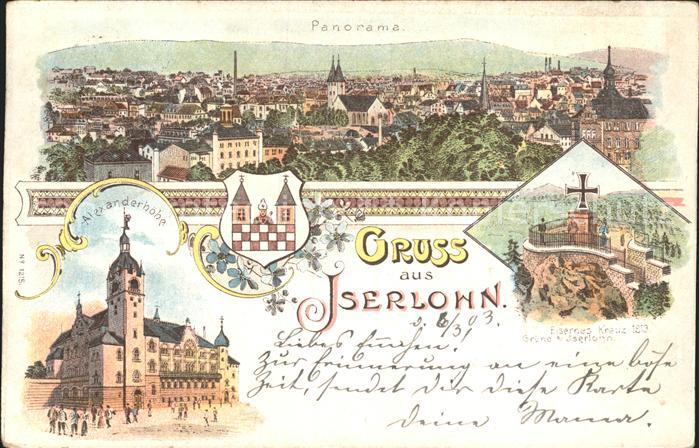 Panorama.
Alexanderhöhe
GRUSS
aus
ISERLOHN.
Eisernes Kreuz 1813.
Grüne b. Iserlohn.
d. 6/3 03.
Liebes
Zur Erinnerung an eine böse
Zeit, sendet dir diese Karte
deine Mama.